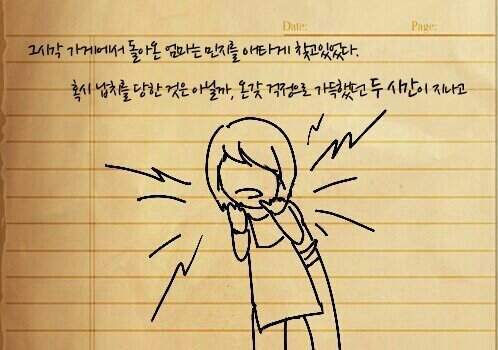 Date: Page:
그시각 가게에서 돌아온 엄마는 민지를 애타게 찾고있었다.
혹시 납치를 당한 것은 아닐까, 온갖 걱정으로 가득했던 두 시간이 지나고